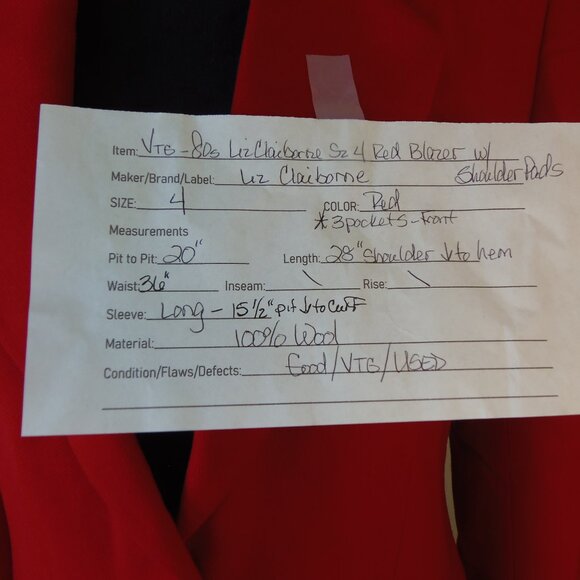 Item: VTG - 80s Liz Claiborne Sz 4 Red Blazer w/ Shoulder Pads
Maker/Brand/Label: Liz Claiborne
SIZE: 4 COLOR: Red
* 3 pockets - front
Measurements
Pit to Pit: 20" Length: 28" shoulder ↓ to hem
Waist: 36" Inseam: \ Rise: \
Sleeve: Long - 15 1/2" pit ↓ to cuff
Material: 100% Wool
Condition/Flaws/Defects: Good/VTG/USED